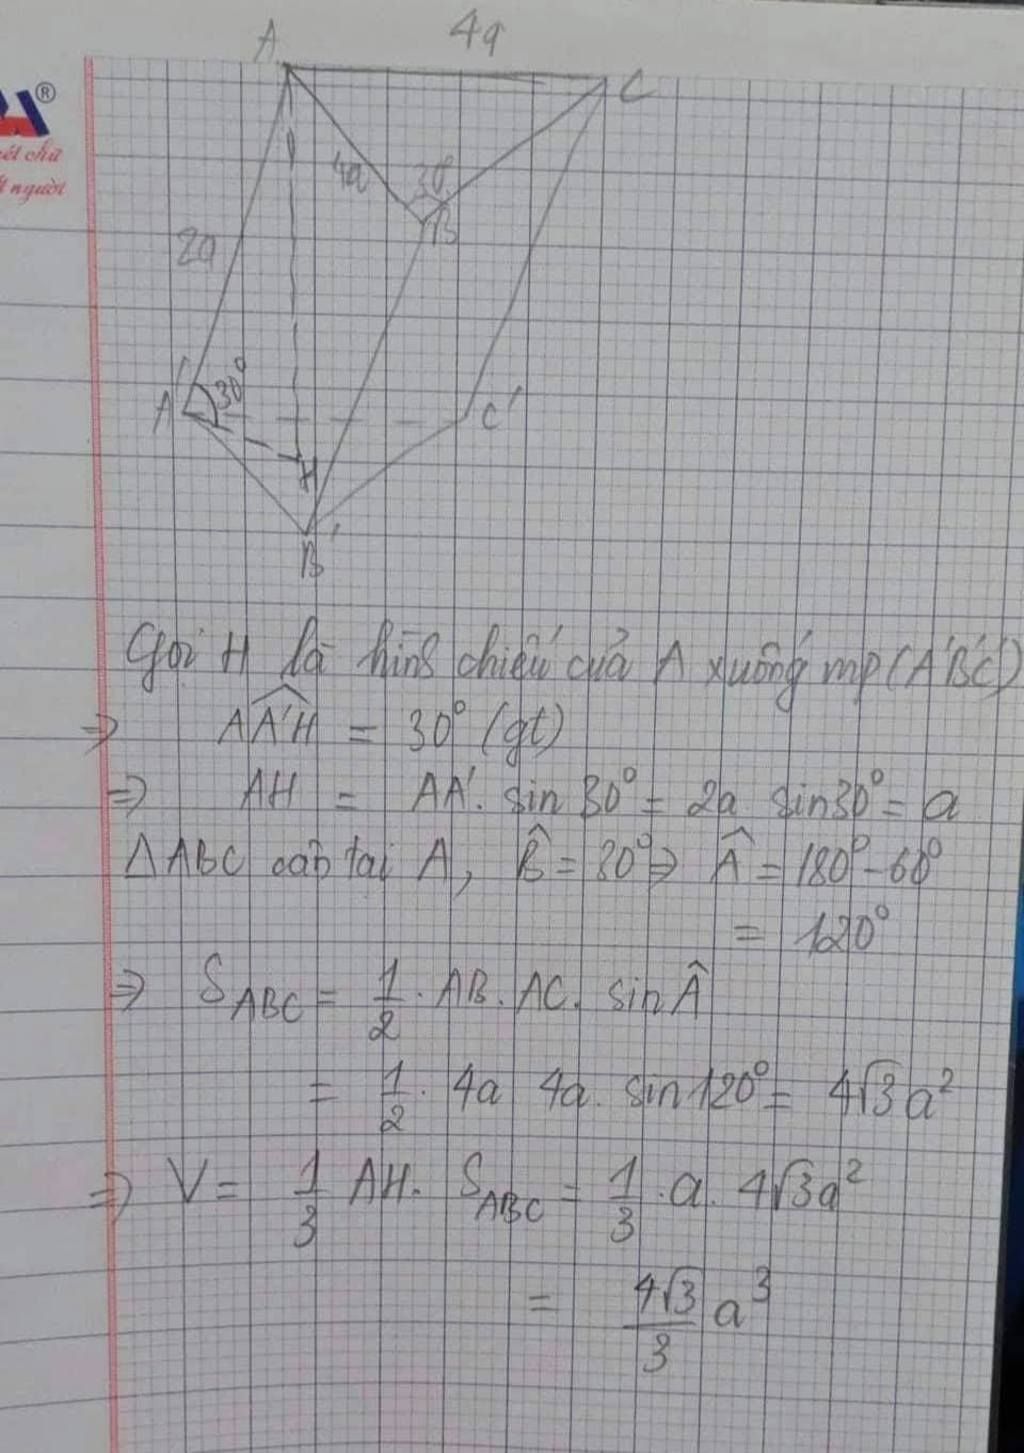 A 4a C
®
ết chữ
t người
4a 30°
B
2a
30°
A' C'
H
B'
Gọi H là hình chiếu của A xuống mp(A'B'C')
⇒ AA'H = 30° (gt)
⇒ AH = AA'. sin 30° = 2a sin30° = a
△ABC cân tại A, B̂ = 30° ⇒ Â = 180° - 60°
= 120°
⇒ S_ABC = 1/2 . AB . AC . sin Â
= 1/2 . 4a 4a. sin120° = 4√3 a²
⇒ V = 1/3 AH. S_ABC = 1/3 . a . 4√3a²
= 4√3/3 a³